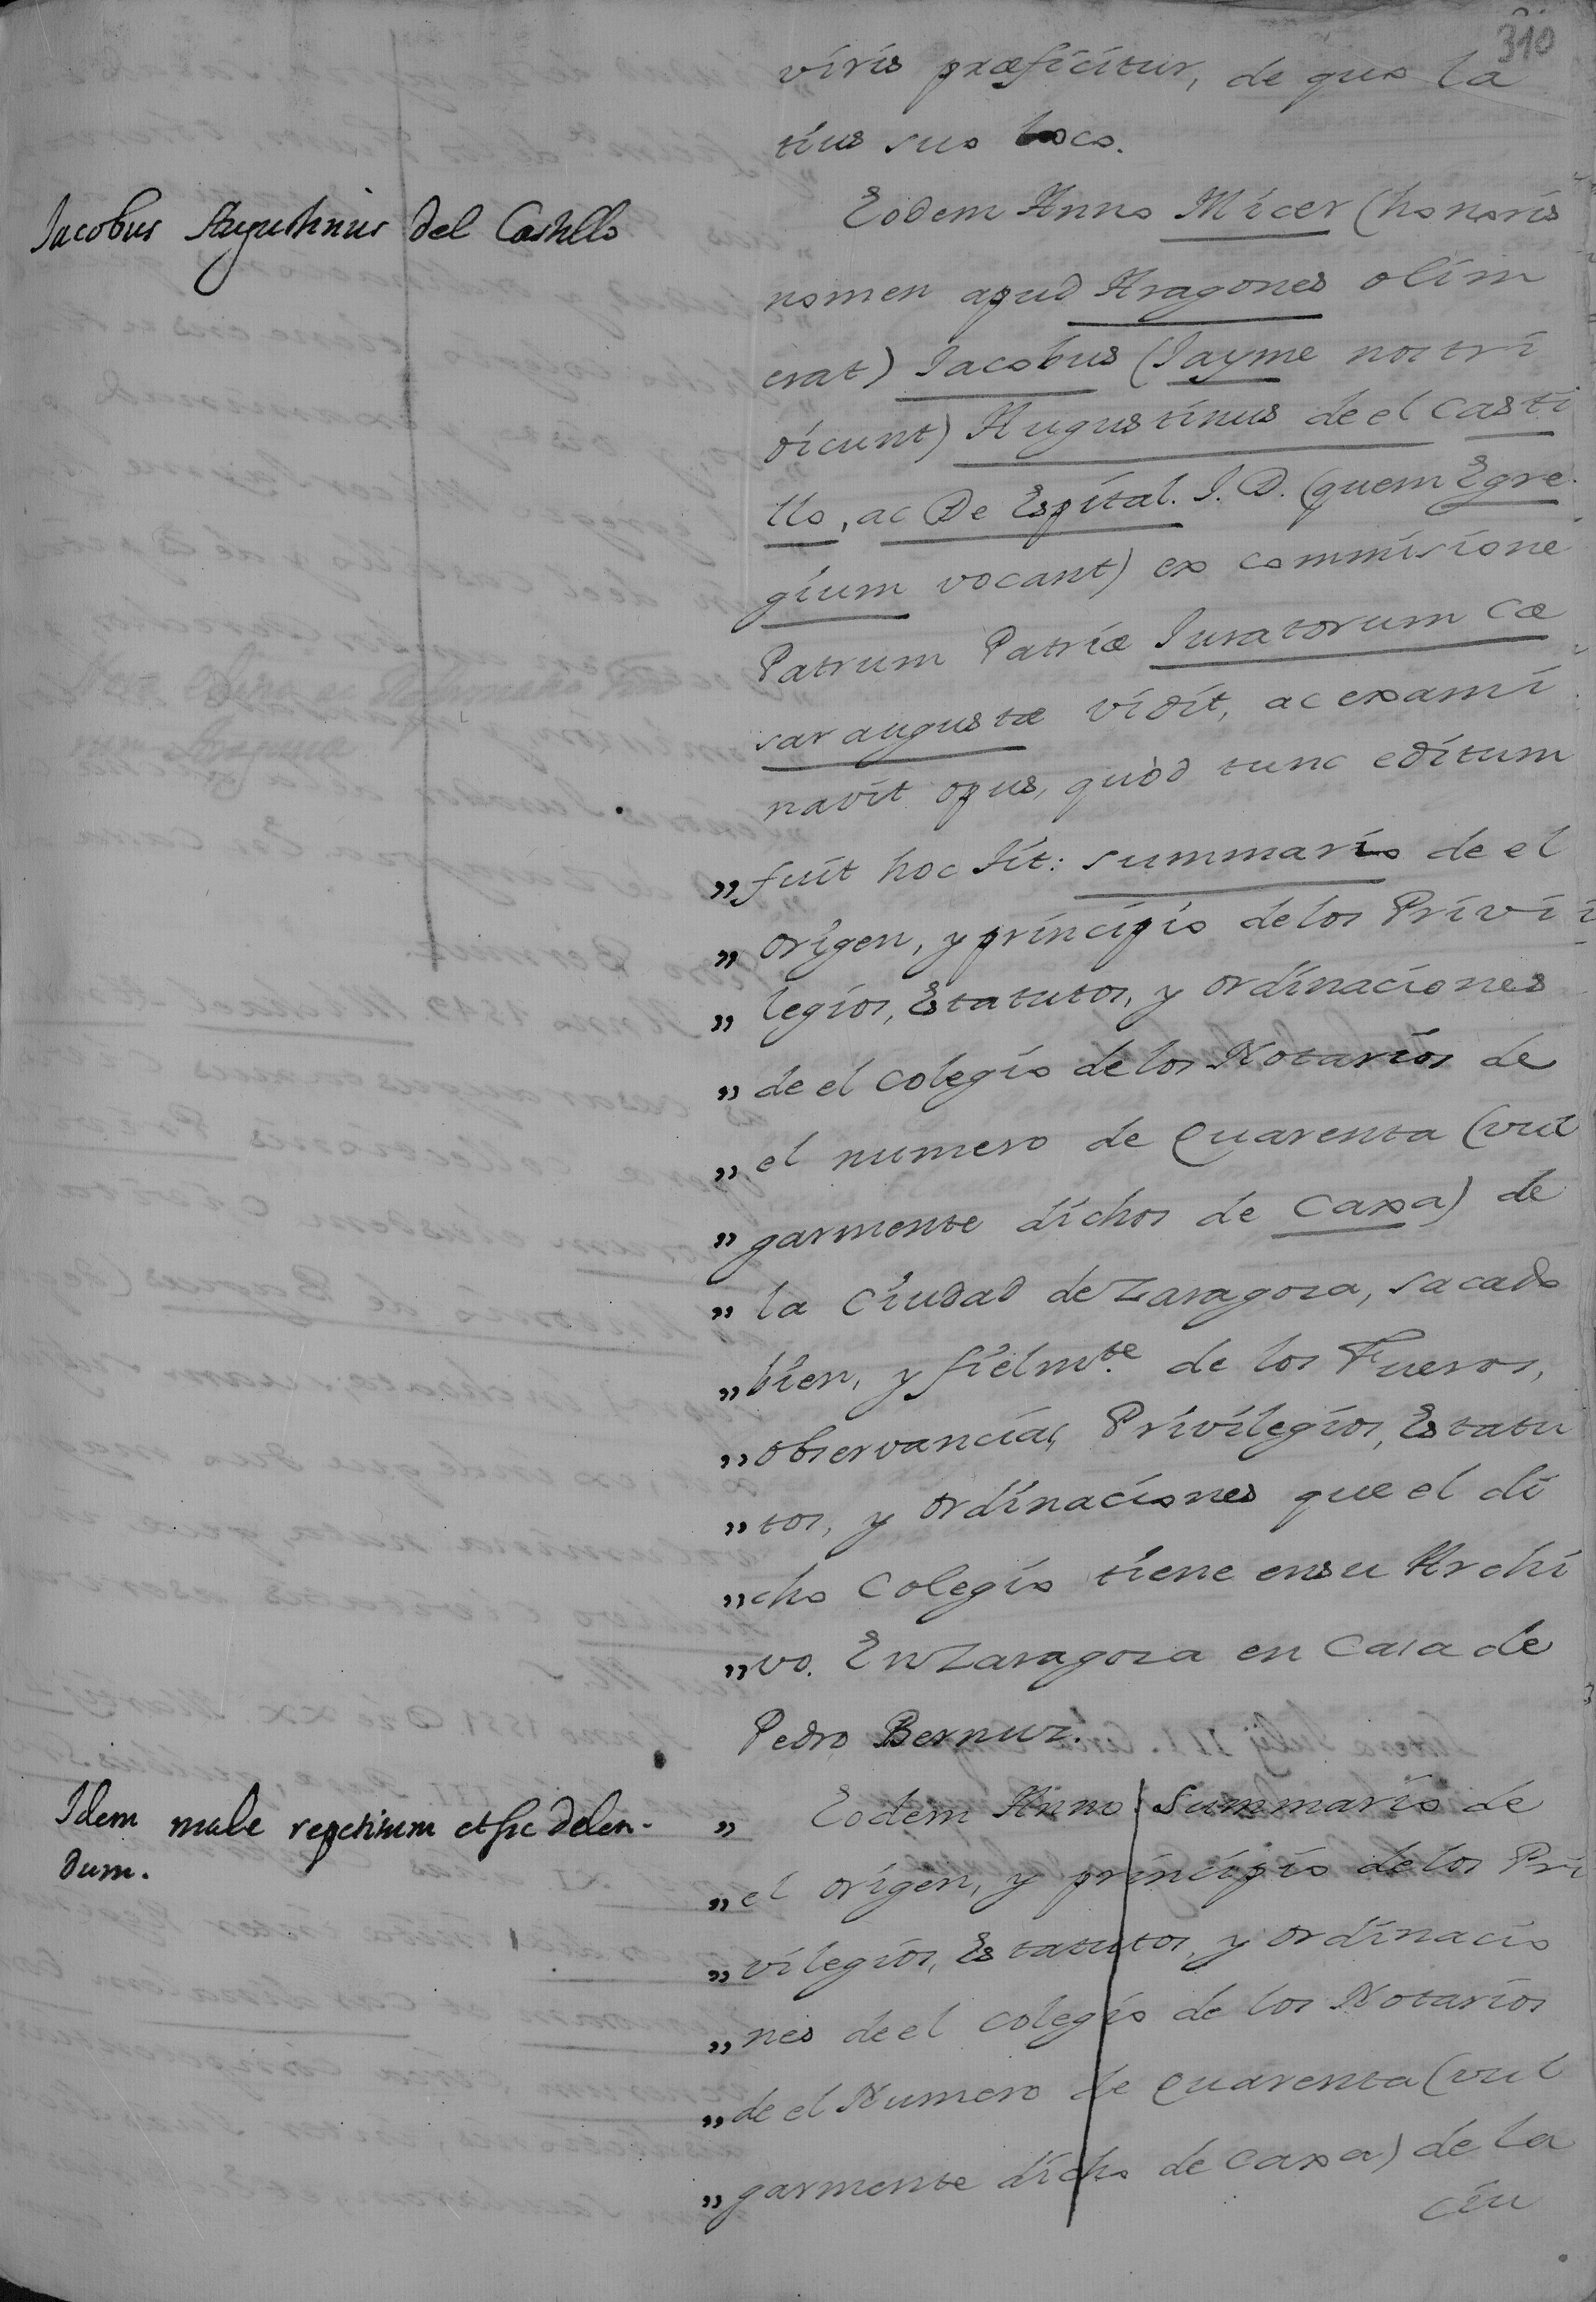 310
viris præficitur, de quo la
tius suo loco.
Jacobus Augustinus del Castillo
Eodem Anno Micer (honoris
nomen apud Aragones olim
erat) Iacobus (Iayme nostri
dicunt) Augustinus de el Casti
llo, ac De Espital. I. D. (quem Egre
gium vocant) ex commisione
Patrum Patriæ Iuratorum Cæ
saraugustæ vidit, ac exami
navit opus, quòd tunc editum
„ fuit hoc tit: Summario de el
„ origen, y principio de los Privi
„ legios, Estatutos, y ordinaciones
„ de el colegio de los Notarios de
„ el numero de Quarenta (vul
„ garmente dichos de Caxa) de
„ la Ciudad de Zaragoza, sacado
„ bien, y fielmte. de los Fueros,
„ observancias, Privilegios, Estatu
„ tos, y ordinaciones que el di
„ cho Colegio tiene ensu Archi
„ vo. En Zaragoza en Casa de
Pedro Bernuz.
Idem male repetitum et sic delen-
dum.
„ Eodem Anno Summario de
„ el origen, y principio de los Pri
„ vilegios, Estatutos, y ordinacio
„ nes de el colegio de los Notarios
„ de el Numero de Quarenta (vul
„ garmente dicho de Caxa) de la
Ciu